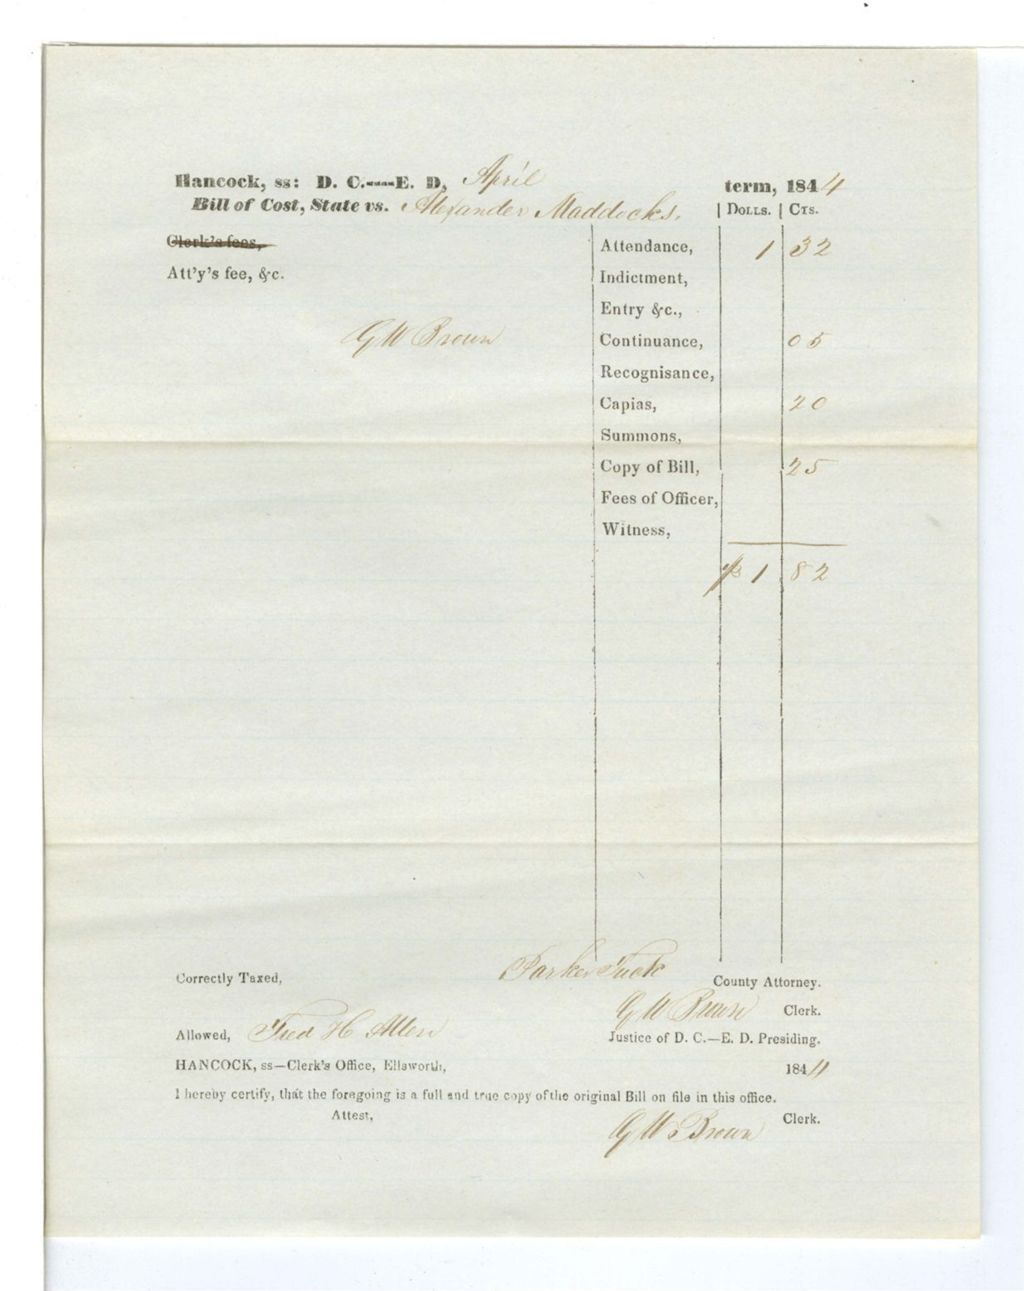 Hancock, ss: D. C.----E. D, April term, 1844
Bill of Cost, State vs. Alexander Maddocks. | Dolls. | Cts.
Clerk's fees, Attendance, 1 32
Att'y's fee, &c. Indictment,
Entry &c.,
G W Brown Continuance, 05
Recognisance,
Capias, 20
Summons,
Copy of Bill, 25
Fees of Officer,
Witness,
$ 1 82
Correctly Taxed, Parker Tuck County Attorney.
G W Brown Clerk.
Allowed, Fred H Allen Justice of D. C.—E. D. Presiding.
HANCOCK, ss—Clerk's Office, Ellsworth, 1844
I hereby certify, that the foregoing is a full and true copy of the original Bill on file in this office.
Attest, G W Brown Clerk.